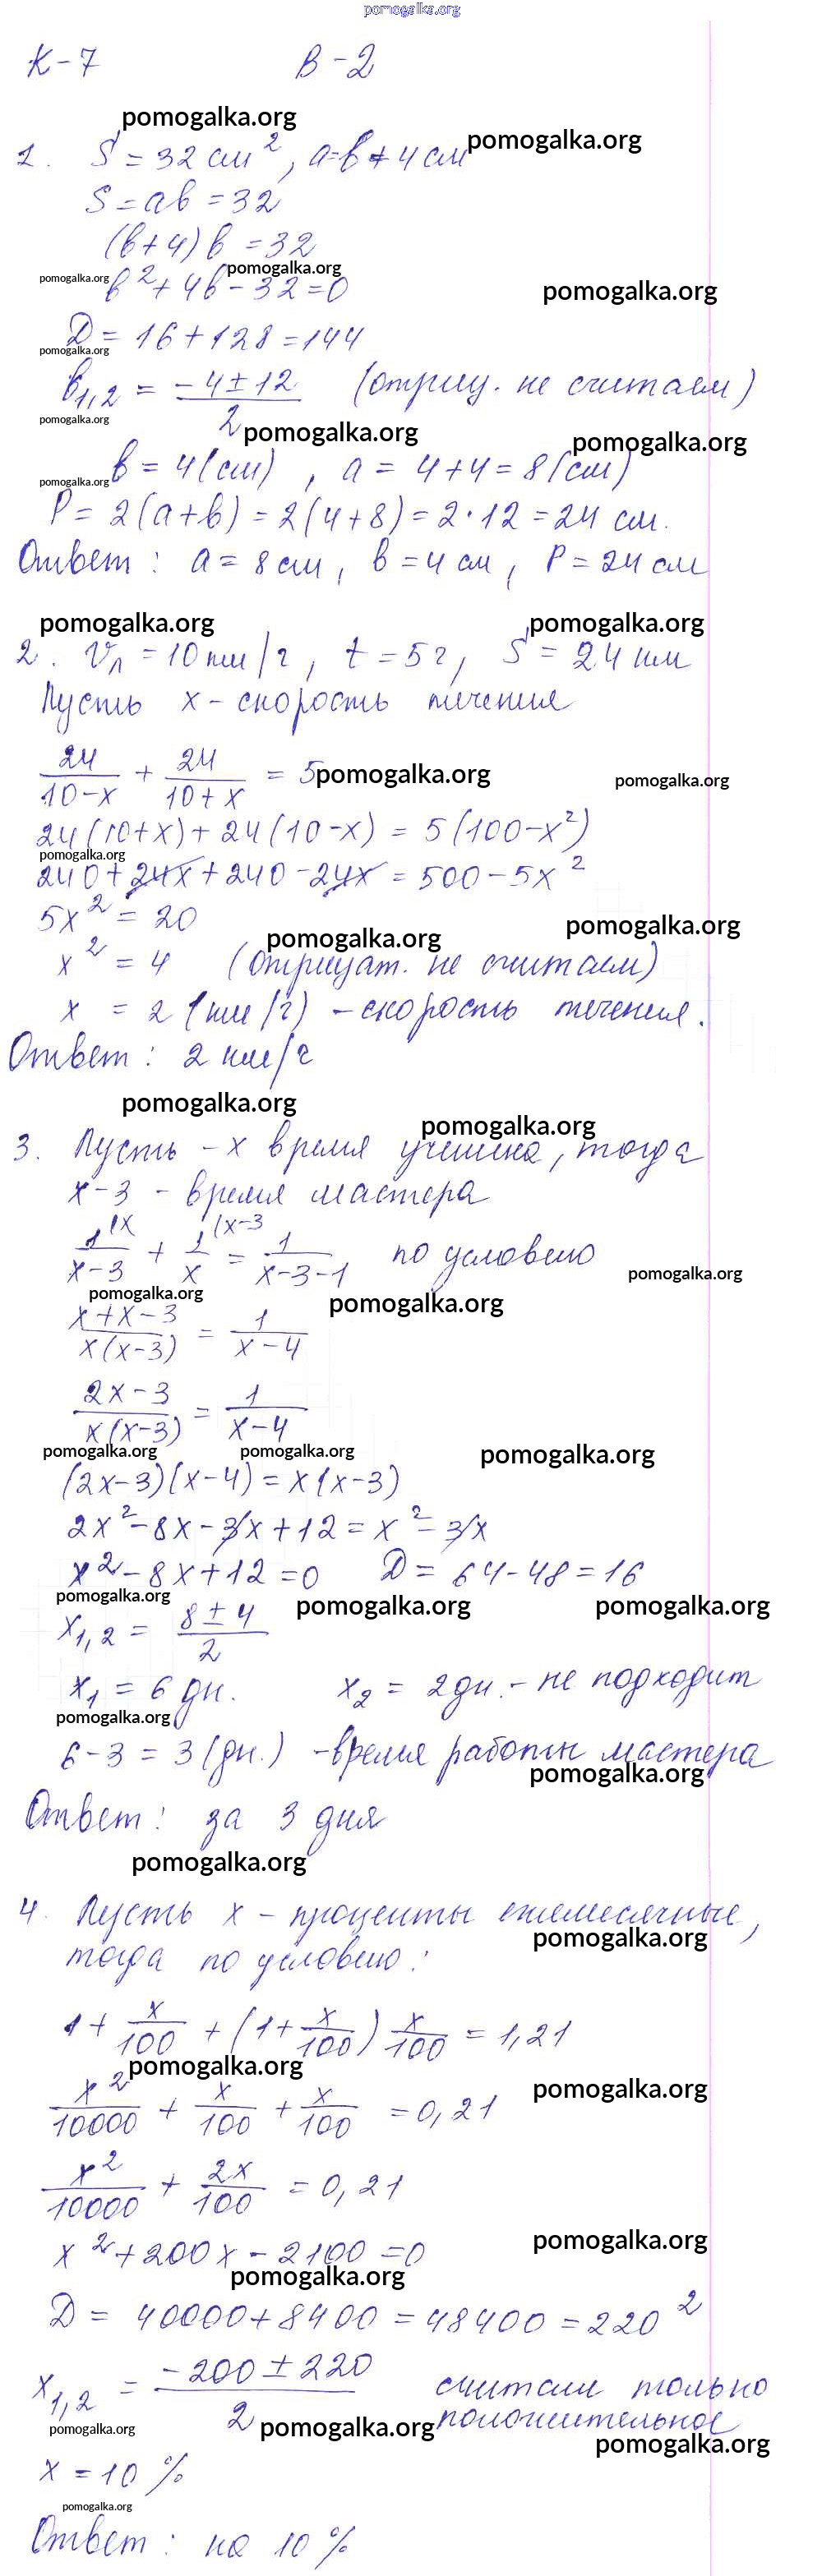 pomogalka.org
К-7 В-2
pomogalka.org
pomogalka.org
1. S = 32 см², a=b+4 см
S = ab = 32
(b+4) b = 32
pomogalka.org
pomogalka.org
b² + 4b - 32 = 0
pomogalka.org
D = 16 + 128 = 144
pomogalka.org
b1,2 = (-4 ± 12)/2 (отриц. не считаем)
pomogalka.org
pomogalka.org
pomogalka.org
b = 4 (см), a = 4+4 = 8 (см)
pomogalka.org
P = 2(a+b) = 2(4+8) = 2·12 = 24 см.
Ответ: a = 8 см, b = 4 см, P = 24 см
pomogalka.org
pomogalka.org
2. Vл = 10 км/г, t = 5 г, S = 24 км
Пусть x - скорость течения
24/(10-x) + 24/(10+x) = 5
pomogalka.org
pomogalka.org
24(10+x) + 24(10-x) = 5(100-x²)
pomogalka.org
240 + 24x + 240 - 24x = 500 - 5x²
5x² = 20
pomogalka.org
pomogalka.org
x² = 4 (отрицат. не считаем)
x = 2 (км/г) - скорость течения.
Ответ: 2 км/г
pomogalka.org
pomogalka.org
3. Пусть - x время ученика, тогда
x-3 - время мастера
1/(x-3) (x + 1/x (x-3 = 1/(x-3-1) по условию
pomogalka.org
pomogalka.org
pomogalka.org
(x+x-3)/(x(x-3)) = 1/(x-4)
(2x-3)/(x(x-3)) = 1/(x-4)
pomogalka.org
pomogalka.org
pomogalka.org
(2x-3)(x-4) = x(x-3)
2x² - 8x - 3x + 12 = x² - 3x
x² - 8x + 12 = 0 D = 64 - 48 = 16
pomogalka.org
pomogalka.org
pomogalka.org
x1,2 = (8 ± 4)/2
x1 = 6 дн. x2 = 2 дн. - не подходит
pomogalka.org
6 - 3 = 3 (дн.) - время работы мастера
pomogalka.org
Ответ: за 3 дня
pomogalka.org
4. Пусть x - проценты ежемесячные,
pomogalka.org
тогда по условию:
1 + x/100 + (1 + x/100) x/100 = 1,21
pomogalka.org
pomogalka.org
x²/10000 + x/100 + x/100 = 0,21
x²/10000 + 2x/100 = 0,21
pomogalka.org
x² + 200x - 2100 = 0
pomogalka.org
D = 40000 + 8400 = 48400 = 220²
x1,2 = (-200 ± 220)/2 считаем только
положительное
pomogalka.org
pomogalka.org
pomogalka.org
x = 10 %
pomogalka.org
Ответ: на 10 %